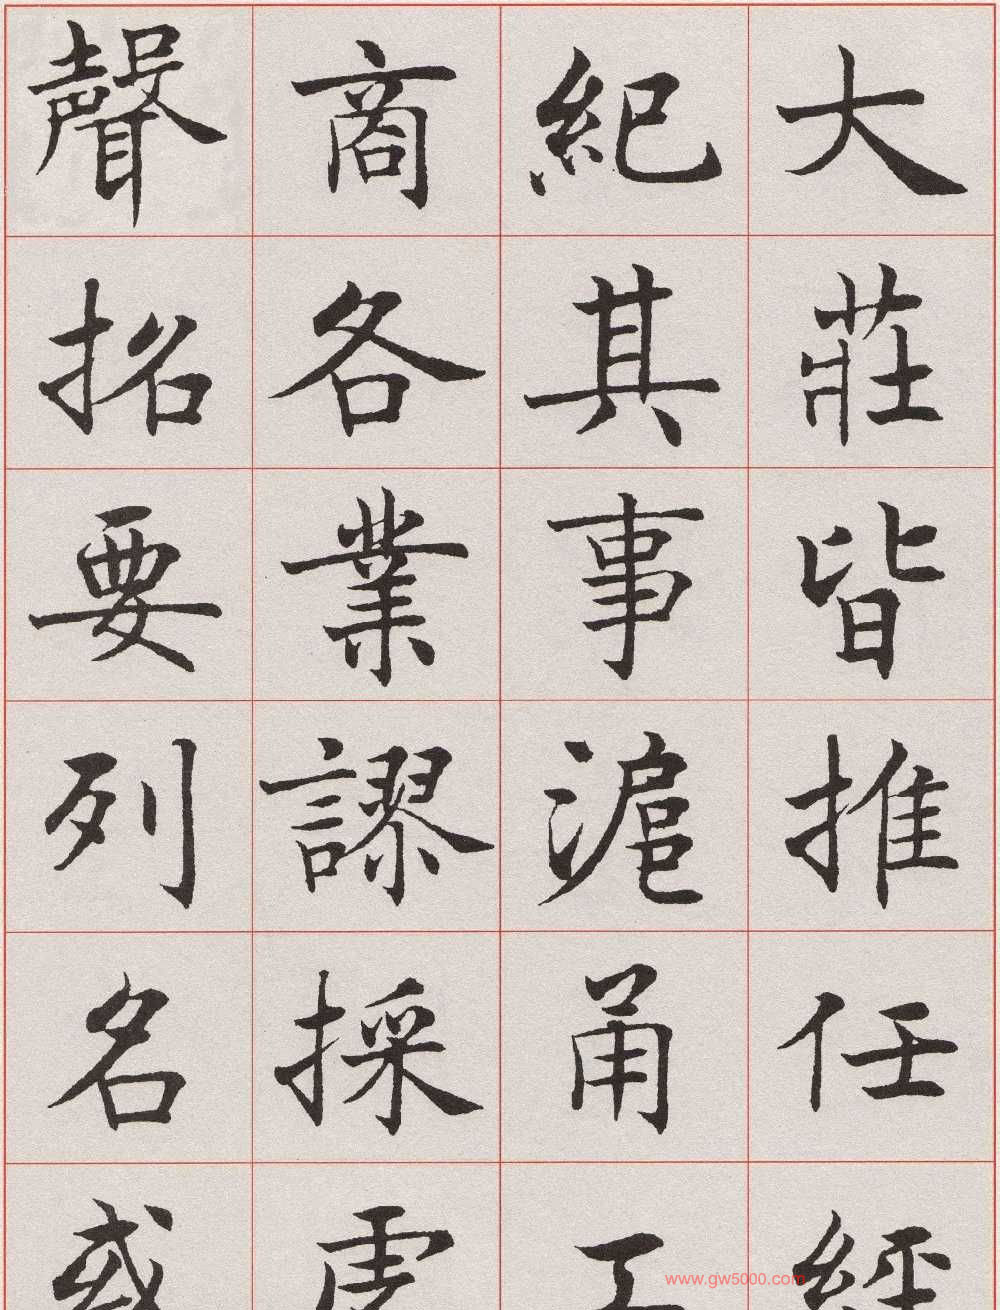 大莊皆推任經
紀其事滬甬
商各業謬採虛
聲招要列名
www.gw5000.com